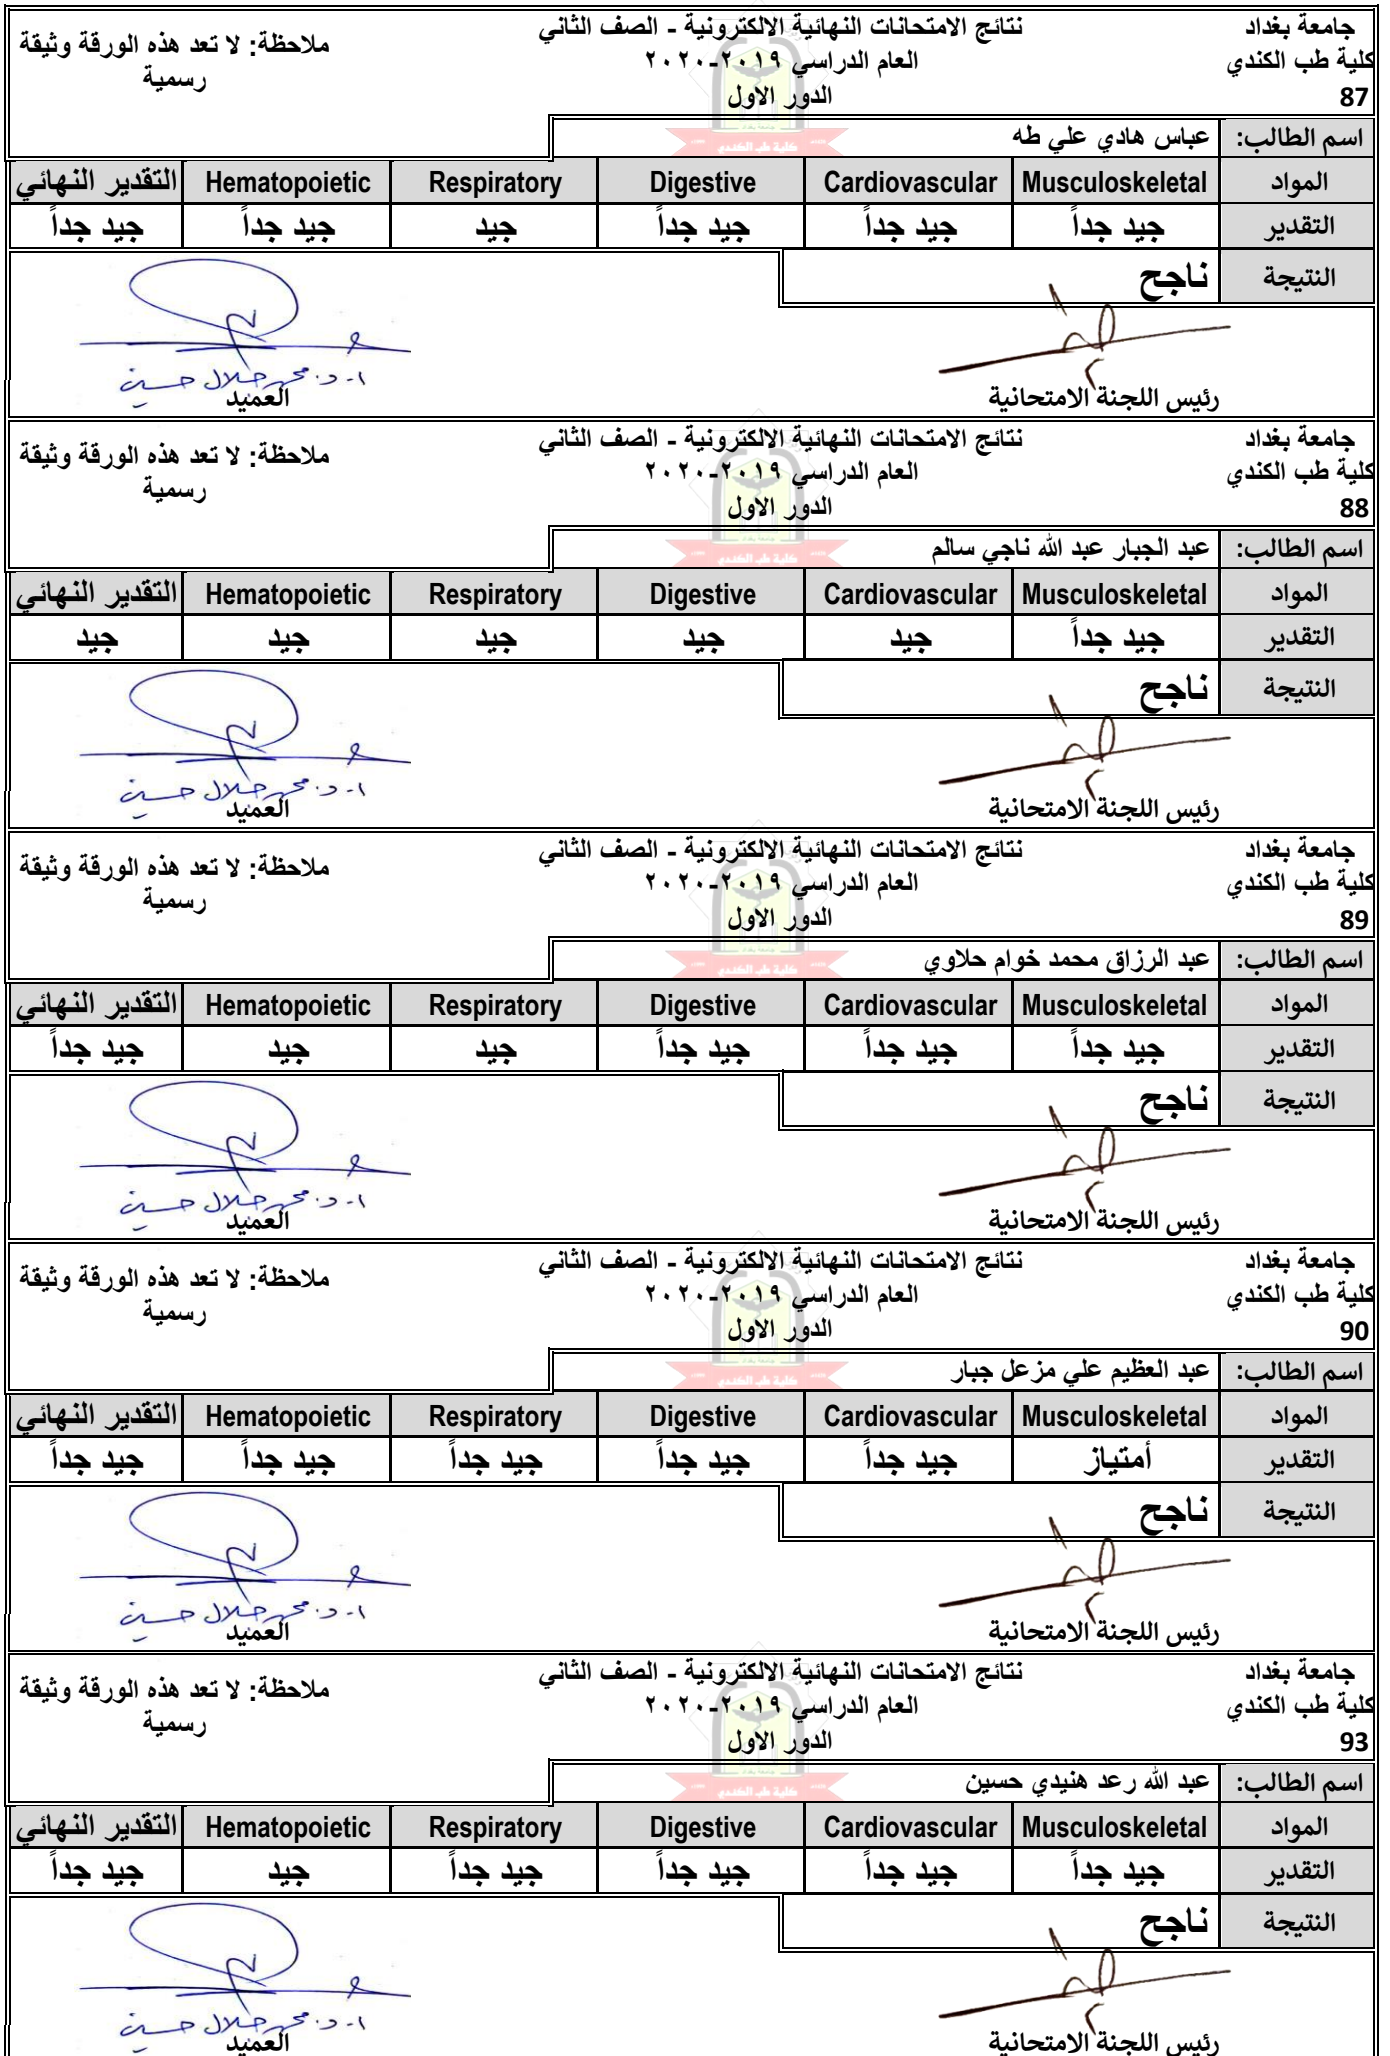 جامعة بغداد
كلية طب الكندي
87
نتائج الامتحانات النهائية الالكترونية - الصف الثاني
العام الدراسي ٢٠١٩-٢٠٢٠
الدور الاول
ملاحظة: لا تعد هذه الورقة وثيقة
رسمية
كلية طب الكندي
اسم الطالب: عباس هادي علي طه
المواد Musculoskeletal Cardiovascular Digestive Respiratory Hematopoietic التقدير النهائي
التقدير جيد جداً جيد جداً جيد جداً جيد جيد جداً جيد جداً
النتيجة ناجح
ا. د. محمد جلال حسين
رئيس اللجنة الامتحانية العميد
جامعة بغداد
كلية طب الكندي
88
نتائج الامتحانات النهائية الالكترونية - الصف الثاني
العام الدراسي ٢٠١٩-٢٠٢٠
الدور الاول
ملاحظة: لا تعد هذه الورقة وثيقة
رسمية
كلية طب الكندي
اسم الطالب: عبد الجبار عبد الله ناجي سالم
المواد Musculoskeletal Cardiovascular Digestive Respiratory Hematopoietic التقدير النهائي
التقدير جيد جداً جيد جيد جيد جيد جيد
النتيجة ناجح
ا. د. محمد جلال حسين
رئيس اللجنة الامتحانية العميد
جامعة بغداد
كلية طب الكندي
89
نتائج الامتحانات النهائية الالكترونية - الصف الثاني
العام الدراسي ٢٠١٩-٢٠٢٠
الدور الاول
ملاحظة: لا تعد هذه الورقة وثيقة
رسمية
كلية طب الكندي
اسم الطالب: عبد الرزاق محمد خوام حلاوي
المواد Musculoskeletal Cardiovascular Digestive Respiratory Hematopoietic التقدير النهائي
التقدير جيد جداً جيد جداً جيد جداً جيد جيد جيد جداً
النتيجة ناجح
ا. د. محمد جلال حسين
رئيس اللجنة الامتحانية العميد
جامعة بغداد
كلية طب الكندي
90
نتائج الامتحانات النهائية الالكترونية - الصف الثاني
العام الدراسي ٢٠١٩-٢٠٢٠
الدور الاول
ملاحظة: لا تعد هذه الورقة وثيقة
رسمية
كلية طب الكندي
اسم الطالب: عبد العظيم علي مزعل جبار
المواد Musculoskeletal Cardiovascular Digestive Respiratory Hematopoietic التقدير النهائي
التقدير أمتياز جيد جداً جيد جداً جيد جداً جيد جداً جيد جداً
النتيجة ناجح
ا. د. محمد جلال حسين
رئيس اللجنة الامتحانية العميد
جامعة بغداد
كلية طب الكندي
93
نتائج الامتحانات النهائية الالكترونية - الصف الثاني
العام الدراسي ٢٠١٩-٢٠٢٠
الدور الاول
ملاحظة: لا تعد هذه الورقة وثيقة
رسمية
كلية طب الكندي
اسم الطالب: عبد الله رعد هنيدي حسين
المواد Musculoskeletal Cardiovascular Digestive Respiratory Hematopoietic التقدير النهائي
التقدير جيد جداً جيد جداً جيد جداً جيد جداً جيد جيد جداً
النتيجة ناجح
ا. د. محمد جلال حسين
رئيس اللجنة الامتحانية العميد